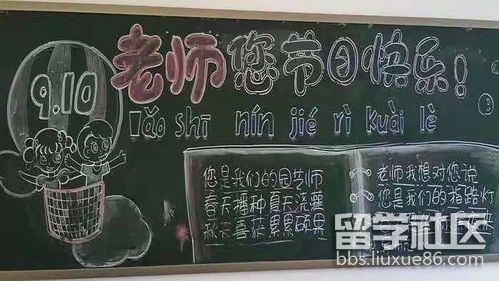 9.10
老师您节日快乐!
lǎo shī nín jié rì kuài lè
您是我们的园艺师
春天播种夏天浇灌
秋天喜获累累硕果
老师我想对您说
您是我们的指路灯
留学社区
bbs.liuxue86.com